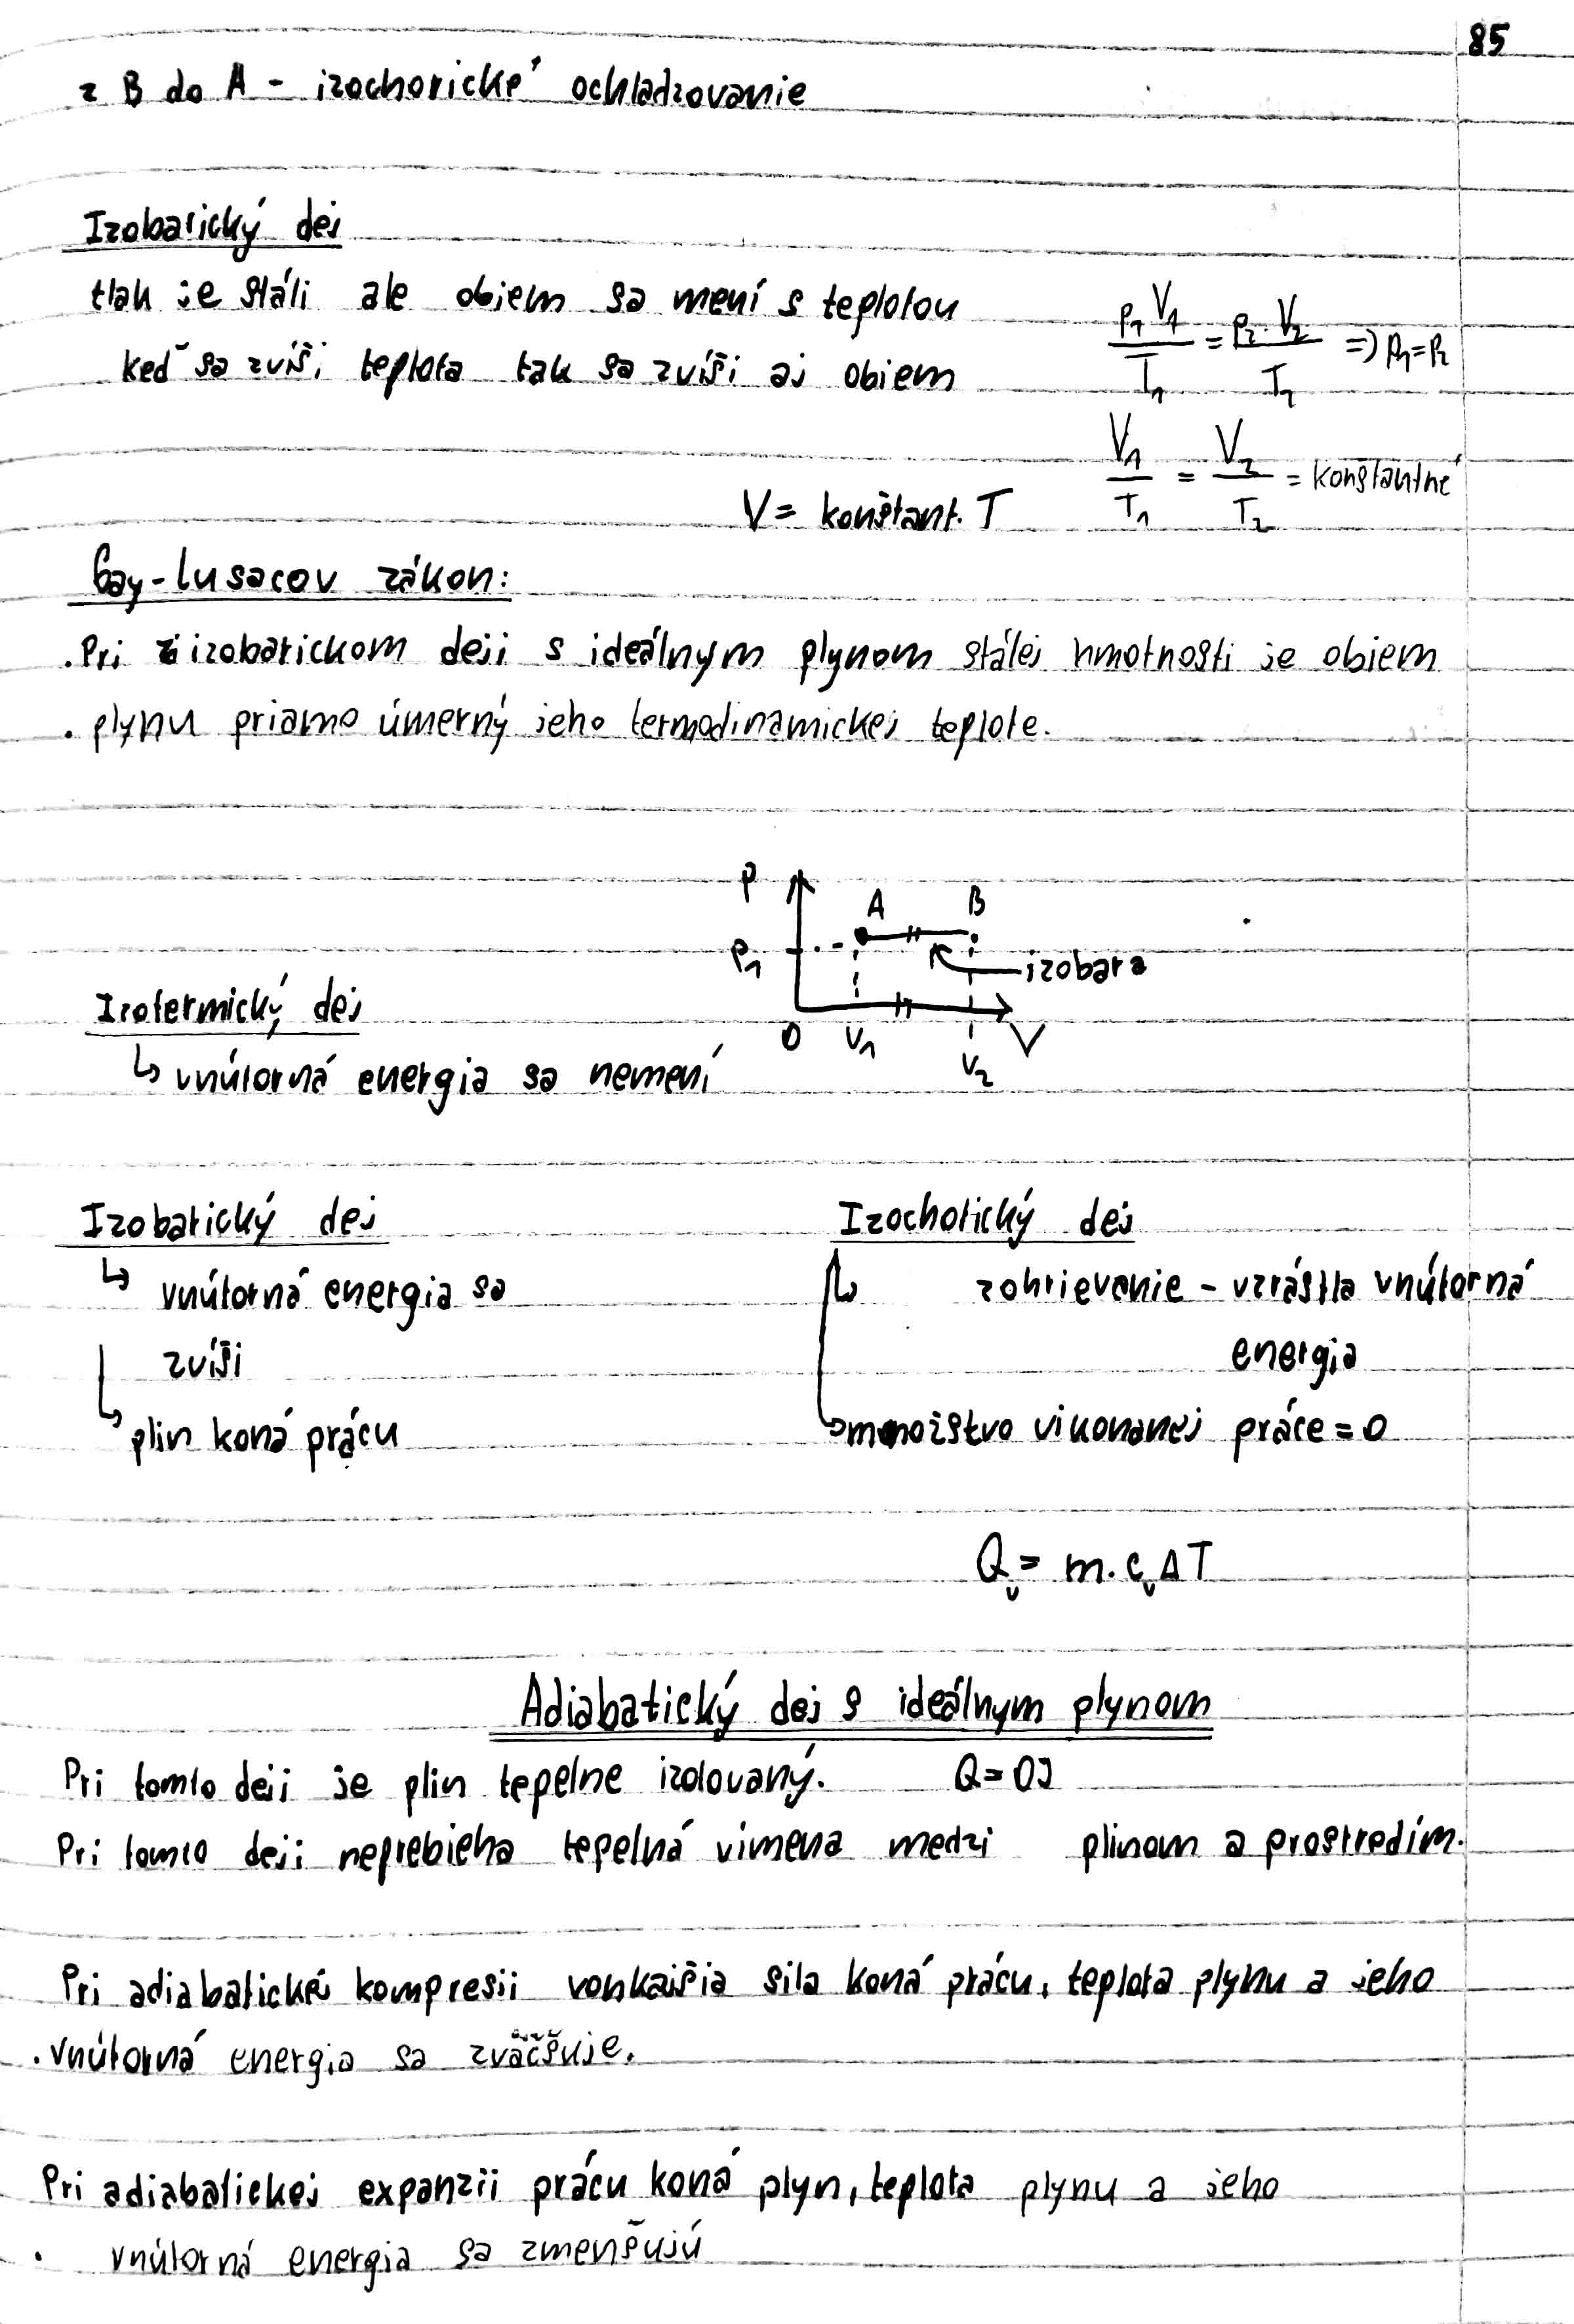 85
z B do A - izochorické ochladzovanie
Izobarický dej
tlak je stáli ale obiem sa mení s teplotou
keď sa zvíši teplota tak sa zvíši aj obiem
p₁ V₁ / T₁ = p₂ . V₂ / T₂ => p₁=p₂
V₁ / T₁ = V₂ / T₂ = konštantné
V = konštant. T
Gay-Lusacov zákon:
. Pri izobarickom deji s ideálnym plynom stálej hmotnosti je obiem
. plynu priamo úmerný jeho termodinamickej teplote.
p
A B
p₁
izobara
0 V₁ V₂ V
Izotermický dej
↳ vnútorná energia sa nemení
Izobarický dej
↳ vnútorná energia sa
zvíši
↳ plin koná prácu
Izochorický dej
↳ zohrievanie - vzrástla vnútorná
energia
↳ mnoižstvo vikonanej práce = 0
Qᵥ = m . cᵥ ΔT
Adiabatický dej s ideálnym plynom
Pri tomto deji je plin tepelne izolovaný. Q = 0J
Pri tomto deji neprebieha tepelná vimena medzi plinom a prostredím.
Pri adiabatickej kompresii vonkajšia sila koná prácu, teplota plynu a jeho
. vnútorná energia sa zväčšuje.
Pri adiabatickej expanzii prácu koná plyn, teplota plynu a jeho
. vnútorná energia sa zmenšujú